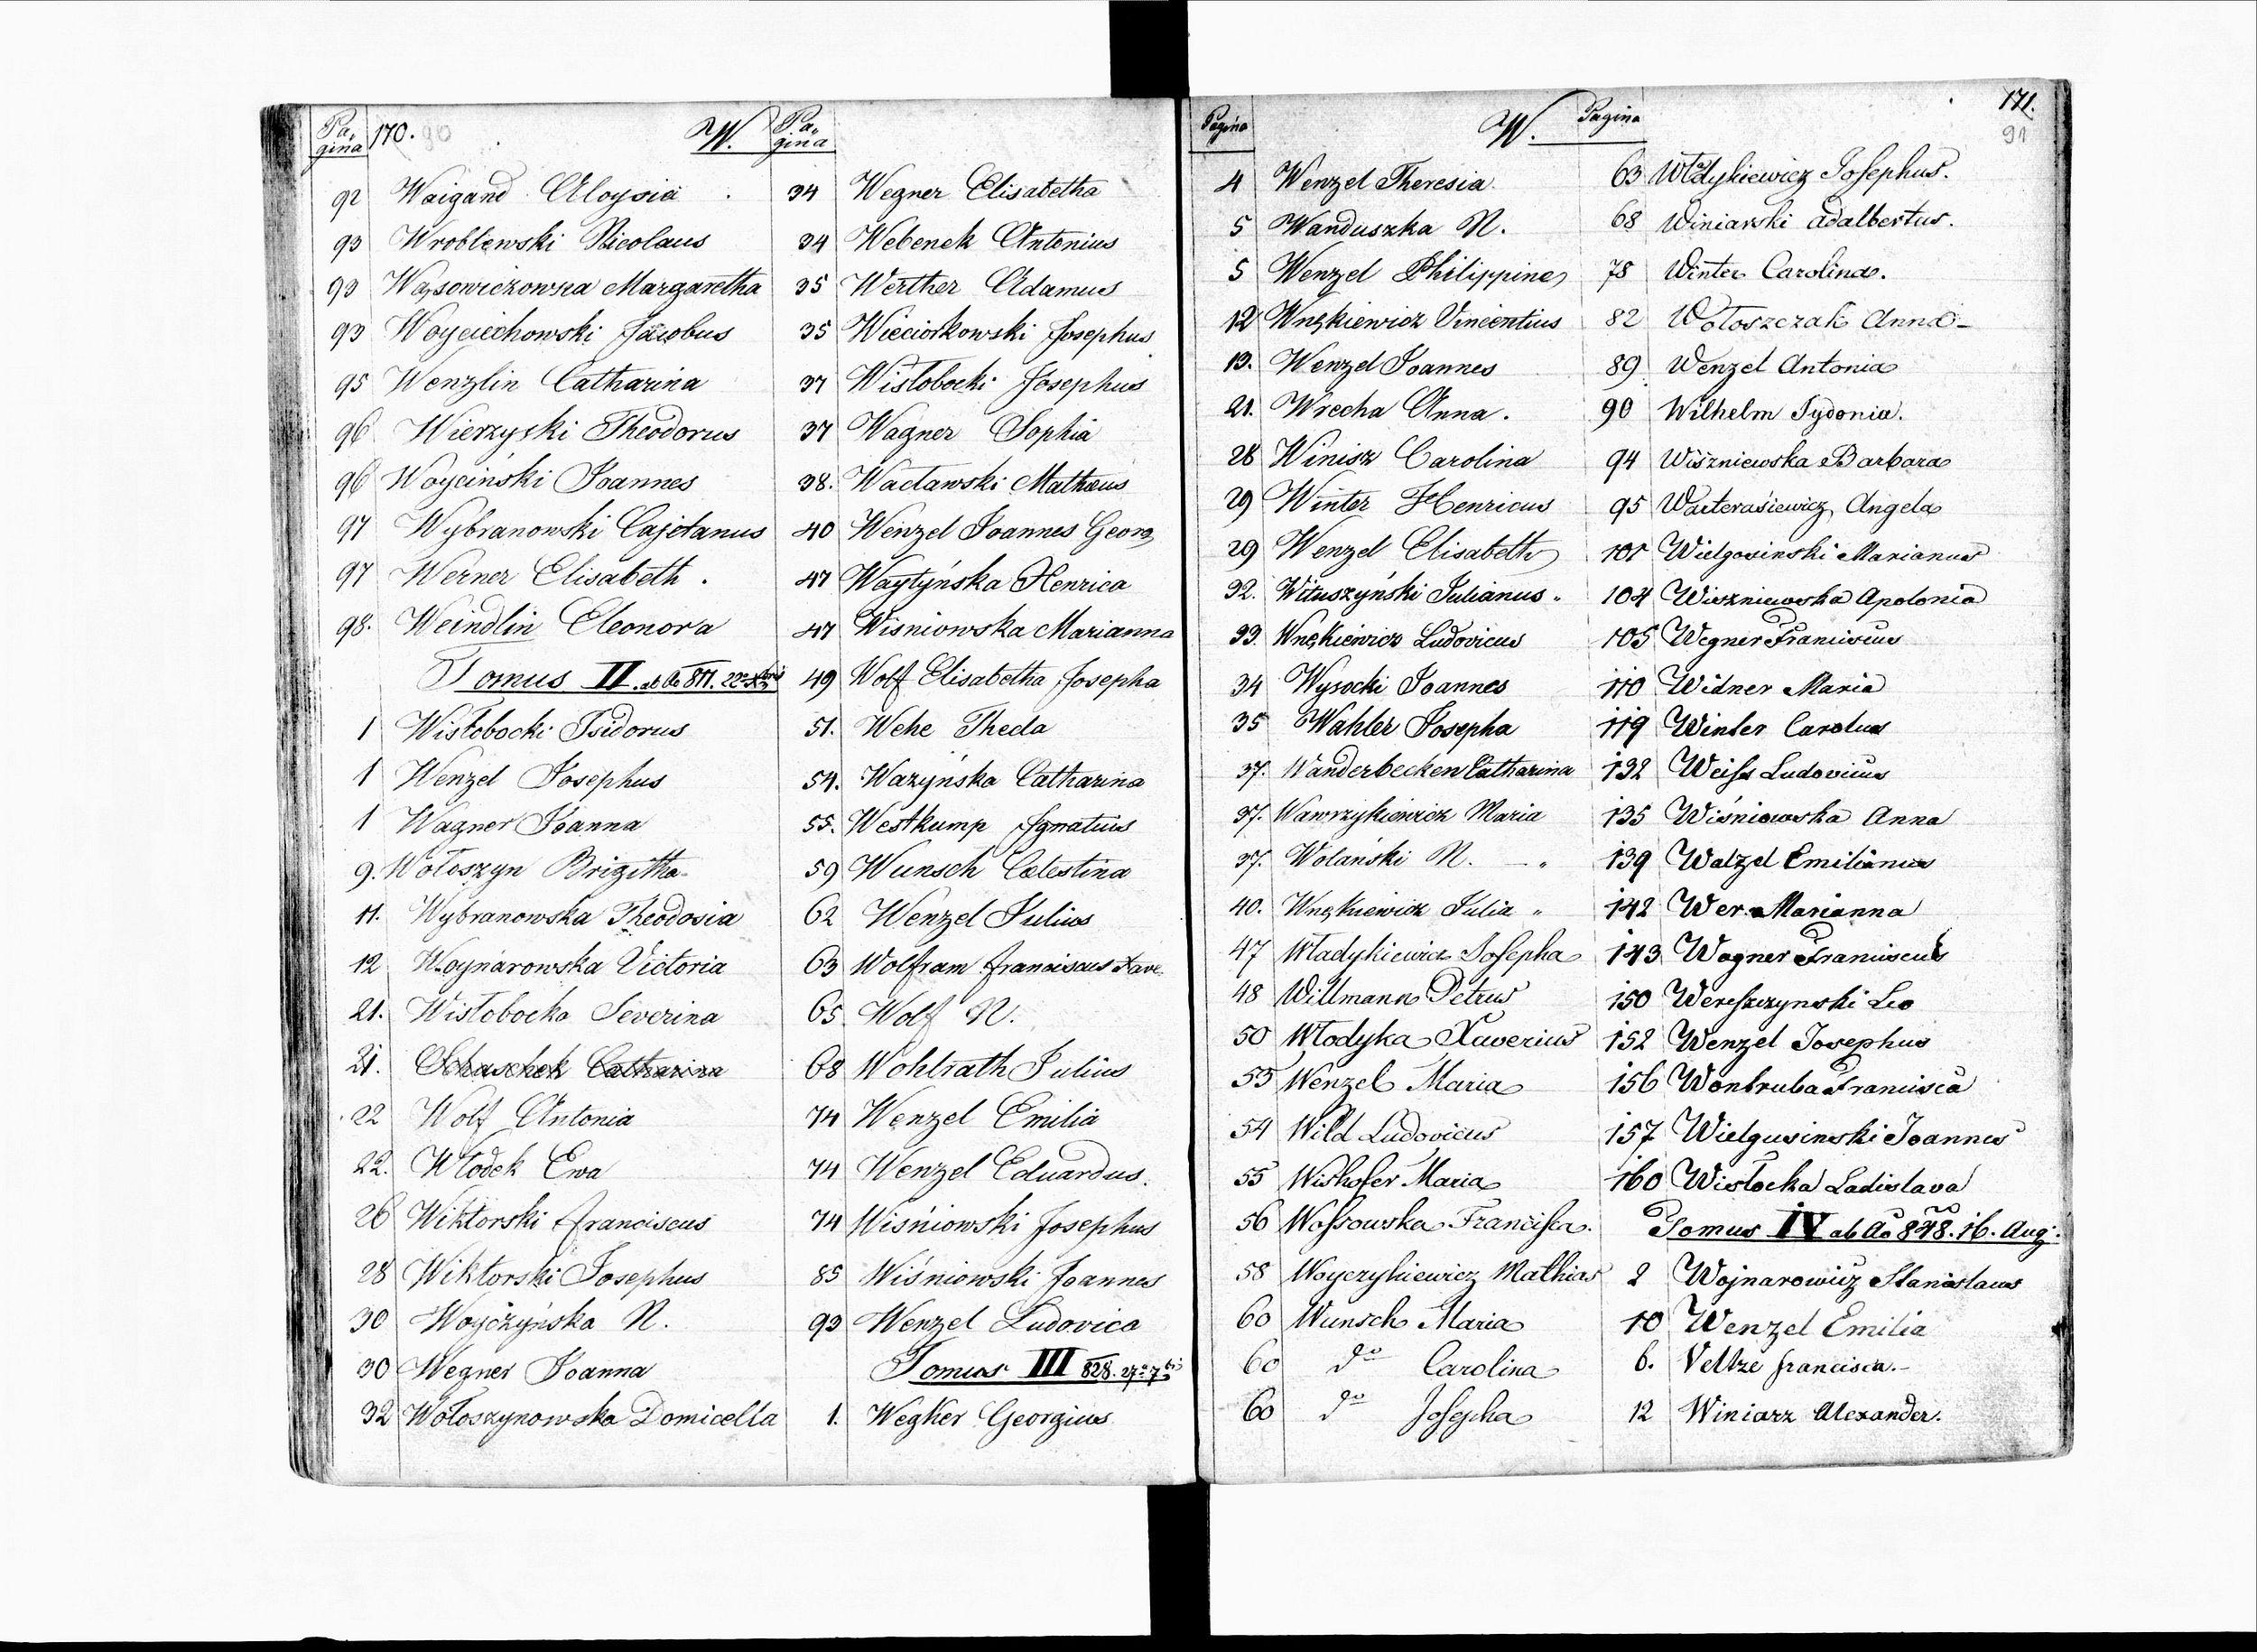 Pagina 170. 90 W. Pagina
92 Waigand Aloysia
93 Wroblewski Nicolaus
93 Wąsowiczowna Margaretha
93 Woyciechowski Jacobus
95 Wenzlin Catharina
96 Wierzyski Theodorus
96 Woyciński Joannes
97 Wybranowski Cajetanus
97 Werner Elisabeth.
98. Weindlin Eleonora
Tomus II. ab Ao 811. 22a Xbris
1 Wisłobocki Isidorus
1 Wenzel Josephus
1 Wagner Joanna
9. Wołoszyn Brigitta
11. Wybranowska Theodosia
12 Woynarowska Victoria
21. Wisłobocka Severina
21. Schaschek Catharina
22 Wolf Antonia
22. Włodek Ewa
26 Wiktorski Franciscus
28 Wiktorski Josephus
30 Woyczyńska N.
30 Wegner Joanna
32 Wołoszynowska Domicella
34 Wegner Elisabetha
34 Webenek Antonius
35 Werther Adamus
35 Wieciorkowski Josephus
37 Wisłobocki Josephus
37 Wagner Sophia
38. Wacławski Mathæus
40 Wenzel Joannes Georg
47 Waytyńska Henrica
47 Wisniowska Marianna
49 Wolf Elisabetha Josepha
51. Wehe Thecla
54. Wazyńska Catharina
55. Westkump Ignatius
59 Wunsch Celestina
62 Wenzel Julius
63 Wolfram Franciscus Xave.
65 Wolf N.
68 Wohlrath Julius
74 Wenzel Emilia
74 Wenzel Eduardus.
74 Wiśniowski Josephus
85 Wiśniowski Joannes
93 Wenzel Ludovica
Tomus III 828. 27a 7bris
1. Wegker Georgius
Pagina W. Pagina 171.
91
4 Wenzel Theresia
5 Wanduszka N.
5 Wenzel Philippine
12 Wnękiewicz Vincentius
13. Wenzel Joannes
21. Wrecha Anna.
28 Winisz Carolina
29 Winter Henricus
29 Wenzel Elisabeth
32. Wituszyński Julianus „
33. Wnękiewicz Ludovicus
34 Wysocki Joannes
35 Wahler Josepha
37. Wanderbecken Catharina
37. Wawrzykiewicz Maria
37. Wolański N. — „
40. Wnękiewicz Julia „
47 Władykiewicz Josepha
48 Willmann Petrus
50 Włodyka Xaverius
53 Wenzel Maria
54 Wild Ludovicus
55 Wishofer Maria
56 Wossowska Francisca.
58 Woyczykiewicz Mathias
60 Wunsch Maria
60 do Carolina
60 do Josepha
63 Władykiewicz Josephus.
68 Winiarski Adalbertus.
78 Winter Carolina.
82 Wołoszczak Anna
89 Wenzel Antonia
90 Wilhelm Sydonia.
94 Wiszniewska Barbara
95 Warterasiewicz Angela
101 Wielgosinski Marianus
104 Wiszniewska Apolonia
105 Wegner Franciscus
110 Widner Maria
119 Winter Carolus
132 Weiss Ludovicus
135 Wiśniowska Anna
139 Watzel Emilianus
142 Wer Marianna
143 Wagner Franciscus
150 Wereszczynski Leo
152 Wenzel Josephus
156 Wontruba Francisca
157 Wielgusinski Joannes
160 Wisłocka Ladislava
Tomus IV ab Ao 848. 16. Aug.
2 Wojnarowicz Stanislaus
10 Wenzel Emilia
6. Veltze Francisca.
12 Winiarz Alexander.